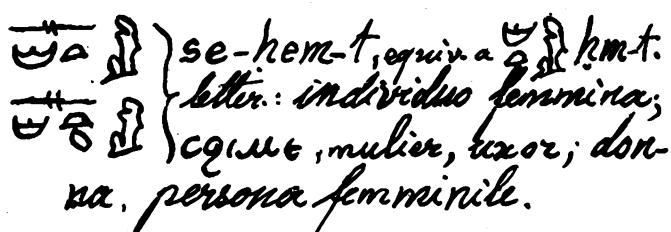 se-hem-t, equiv. a ḥm-t.
letter.: individuo femmina;
ⲥϩⲓⲙⲉ, mulier, uxor; don-
na, persona femminile.